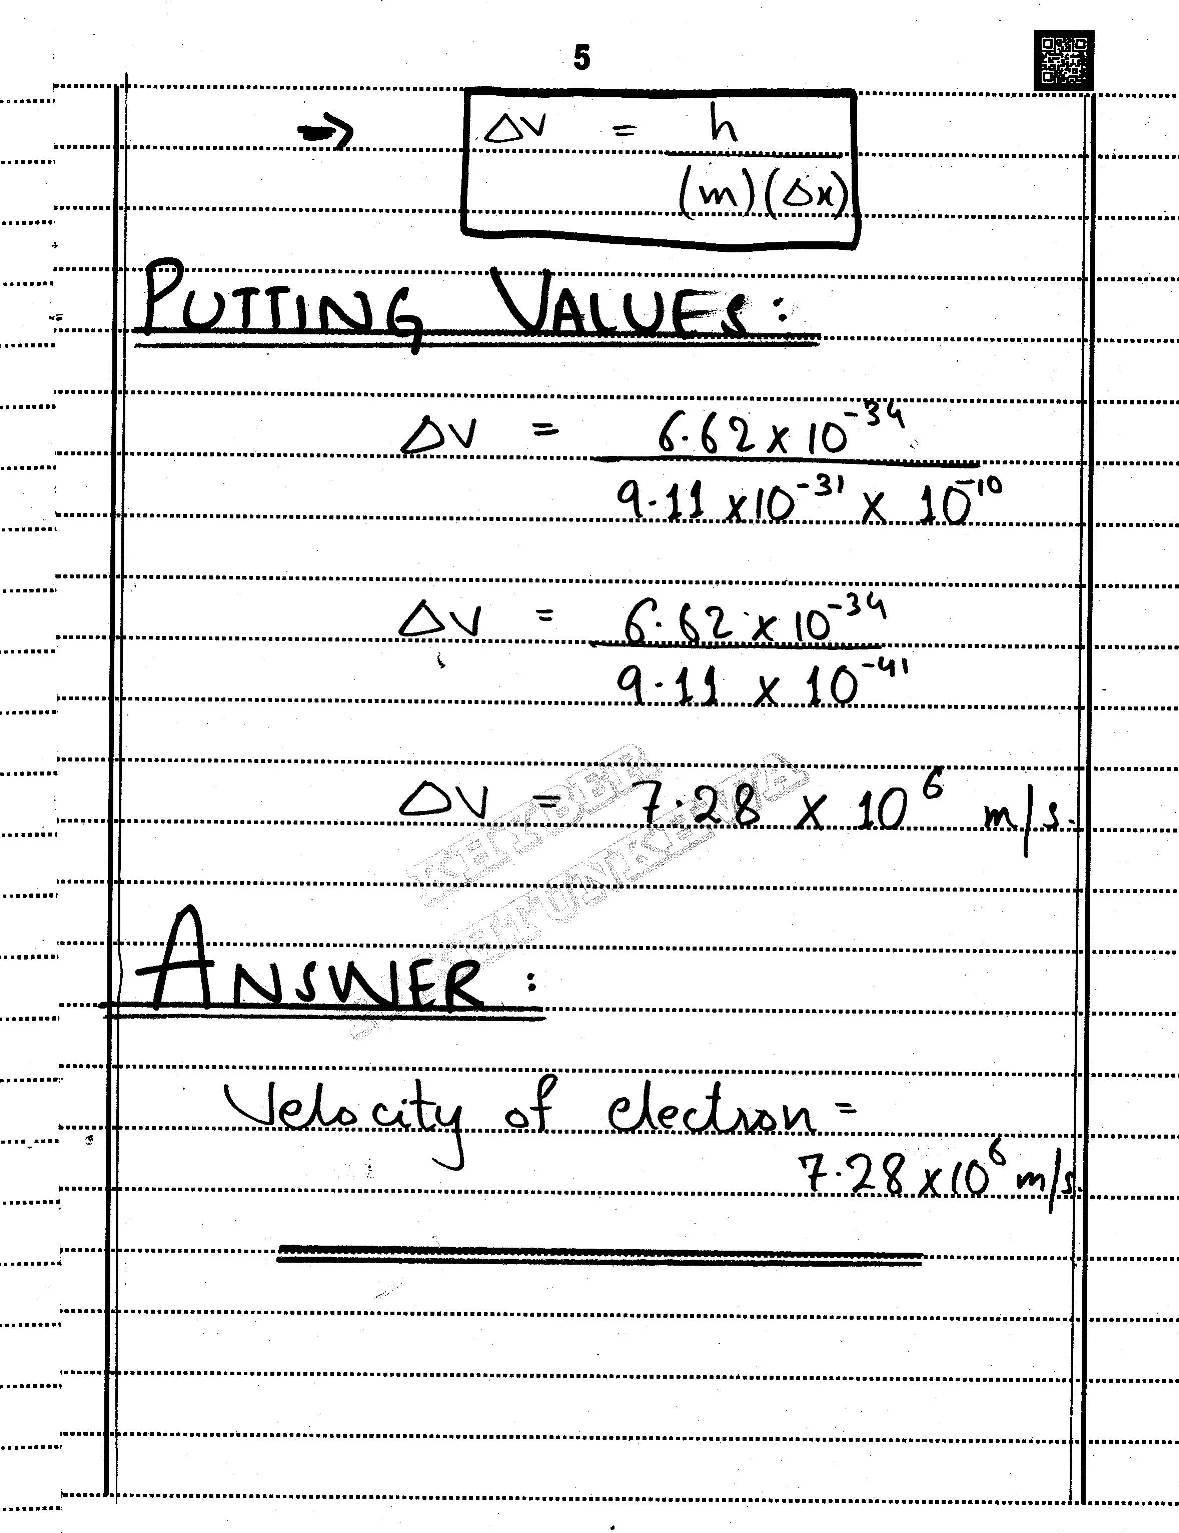 5
→ ΔV = h
(m)(Δx)
PUTTING VALUES:
ΔV = 6.62 x 10⁻³⁴
9.11 x10⁻³¹ x 10⁻¹⁰
ΔV = 6.62 x 10⁻³⁴
9.11 x 10⁻⁴¹
ΔV = 7.28 x 10⁶ m/s.
KHYBER
PAKHTUNKHWA
ANSWER:
Velocity of electron =
7.28 x10⁶ m/s.